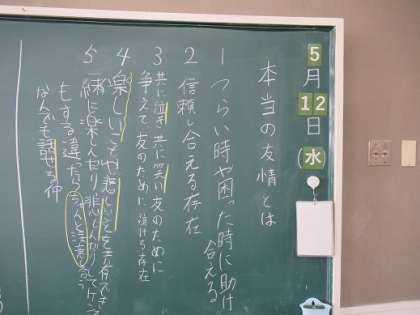 5月12日(水)
本当の友情とは
1 つらい時や困った時に助け
合える
2 信頼し合える存在
3 共に泣き共に笑い友のために
争えて友のために泣ける存在
4 楽しいことや悲しいことを共有でき
5 一緒に楽しんだり悲しんだりしてケンカ
もする違ったら
なんでも話せる仲